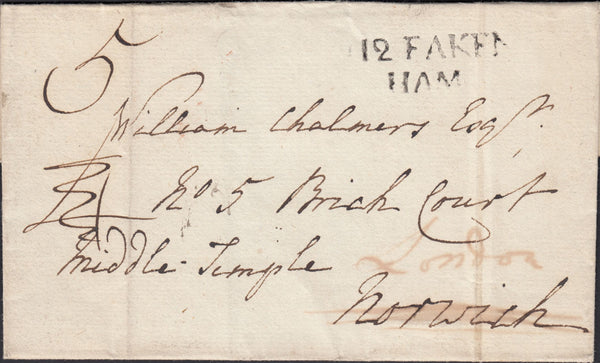 5
12 FAKEN
HAM
William Chalmers Esqr.
No 5 Brick Court
Middle Temple
London
Norwich